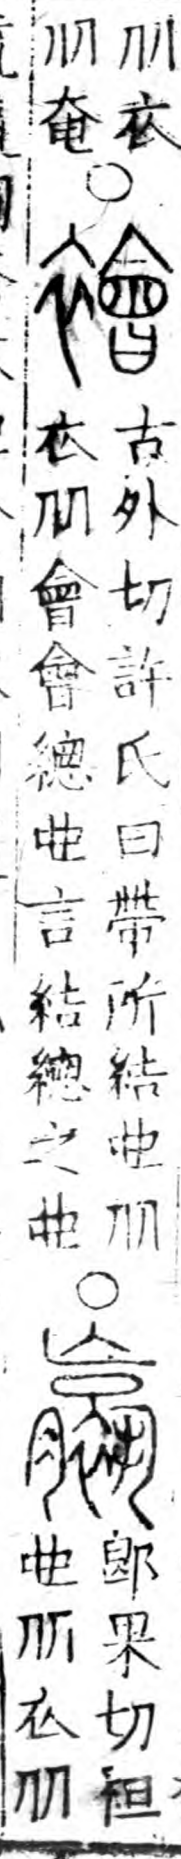 从衣
从奄
○襘
古外切許氏曰帶所結也从
衣从會會總也言結總之也
○
郎果切袒
也从衣从